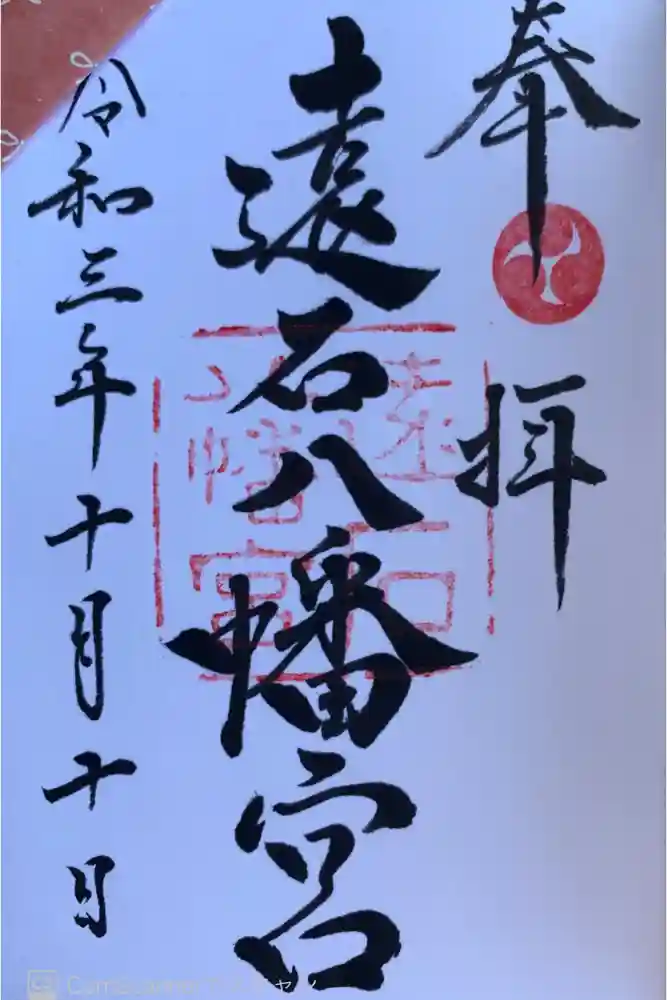 奉拝
遠石八幡宮
令和三年十月十日
遠石
八幡宮
CS CamScanner